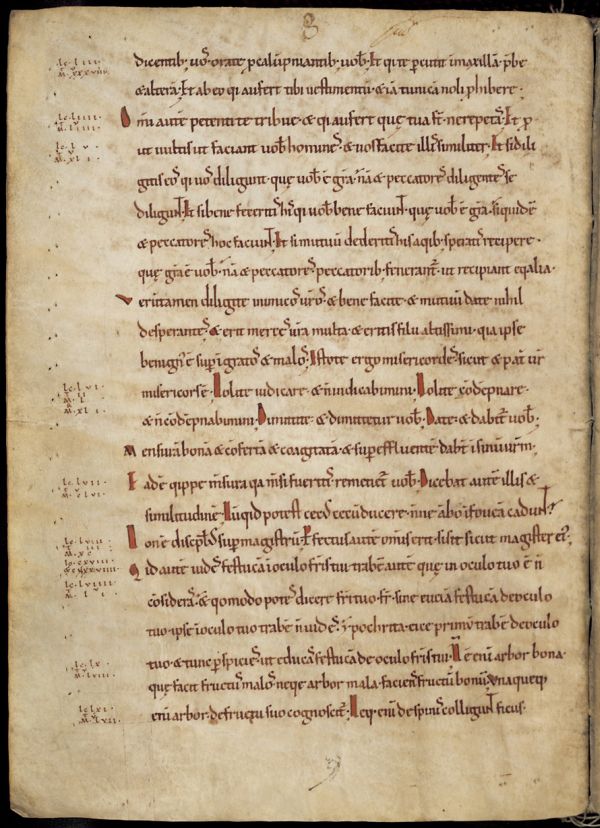 lc. liii.
M. xxxviii.
dicentib; uob̄. orate p calūpniantib; uob̄. Et qui te percutit in maxillā. p̄be
& alterā. Et ab eo qi aufert tibi uestimentū. & iā tunicā noli phibere.
lc. liiii.
M. liiii.
Omi autē petenti te tribue. & qi aufert quę tua st̄. ne repetas. Et p
lc. lv.
M. xli.
ut uultis ut faciant uob̄ homines. & uos facite illis similiter. Et si dili
gitis eos qi uos diligunt. quę uob̄ ē gr̄a. nā & peccatores diligentes se
diligunt. Et si bene feceritis his qi uob̄ bene faciunt. quę uob̄ ē gr̄a. siquidē
& peccatores hoc faciunt. Et si mutuū dederitis his a qib; speratis recipere.
quę gr̄a ē uob̄. nā & peccatores peccatorib; fenerant̄. ut recipiant eqalia.
Verūtamen diligite inimicos uros. & bene facite. & mutuū date nihil
desperantes. & erit merces ura multa. & eritis filii altissimi. quia ipse
benignus ē sup ingratos & malos. Estote ergo misericordes. sicut & pat̄ ur̄
lc. lvi.
M. li.
M. xli.
misericors ē. Nolite iudicare. & n̄ iudicabimini. Nolite cōdēpnare.
& n̄ cōdēpnabimini. Dimittite. & dimittetur uob̄. Date. & dabit̄ uob̄.
Mensurā bonā & cōfertā & coagitatā. & supeffluentē. dabt̄ i sinū urm̄.
lc. lvii.
M. clvi.
Eadē qippe m̄sura qa m̄si fueritis. remetiet̄ uob̄. Dicebat autē illis &
similitudinē. Nūqid potest cecus cecū ducere. n̄ne ābo i foueā cadunt?
lc. lviii.
M. xc.
io. cxviii.
& cxxxviiii.
Non ē discip̄ls sup magistrū. Pfectus autē omis erit. si sit sicut magister ei.
lc. lviiii.
M. li.
Qid autē uides festucā i oculo fris tui. trabē autē quę in oculo tuo ē n̄
cōsideras. & qomodo potes dicere fri tuo. fr̄. sine eiciā festucā de oculo
tuo. ipse i oculo tuo trabē n̄ uides. ypochrita. eice primū trabē de oculo
lc. lx.
M. lviii.
tuo. & tunc perspicies. ut educas festucā de oculo fris tui. Nō ē eni arbor bona.
quę facit fructus malos. neqe arbor mala. faciens fructū bonū. una queqe
lc. lxi.
M. lvii.
eni arbor. de fructu suo cognoscit̄. Neq; eni de spinis colligunt ficus.